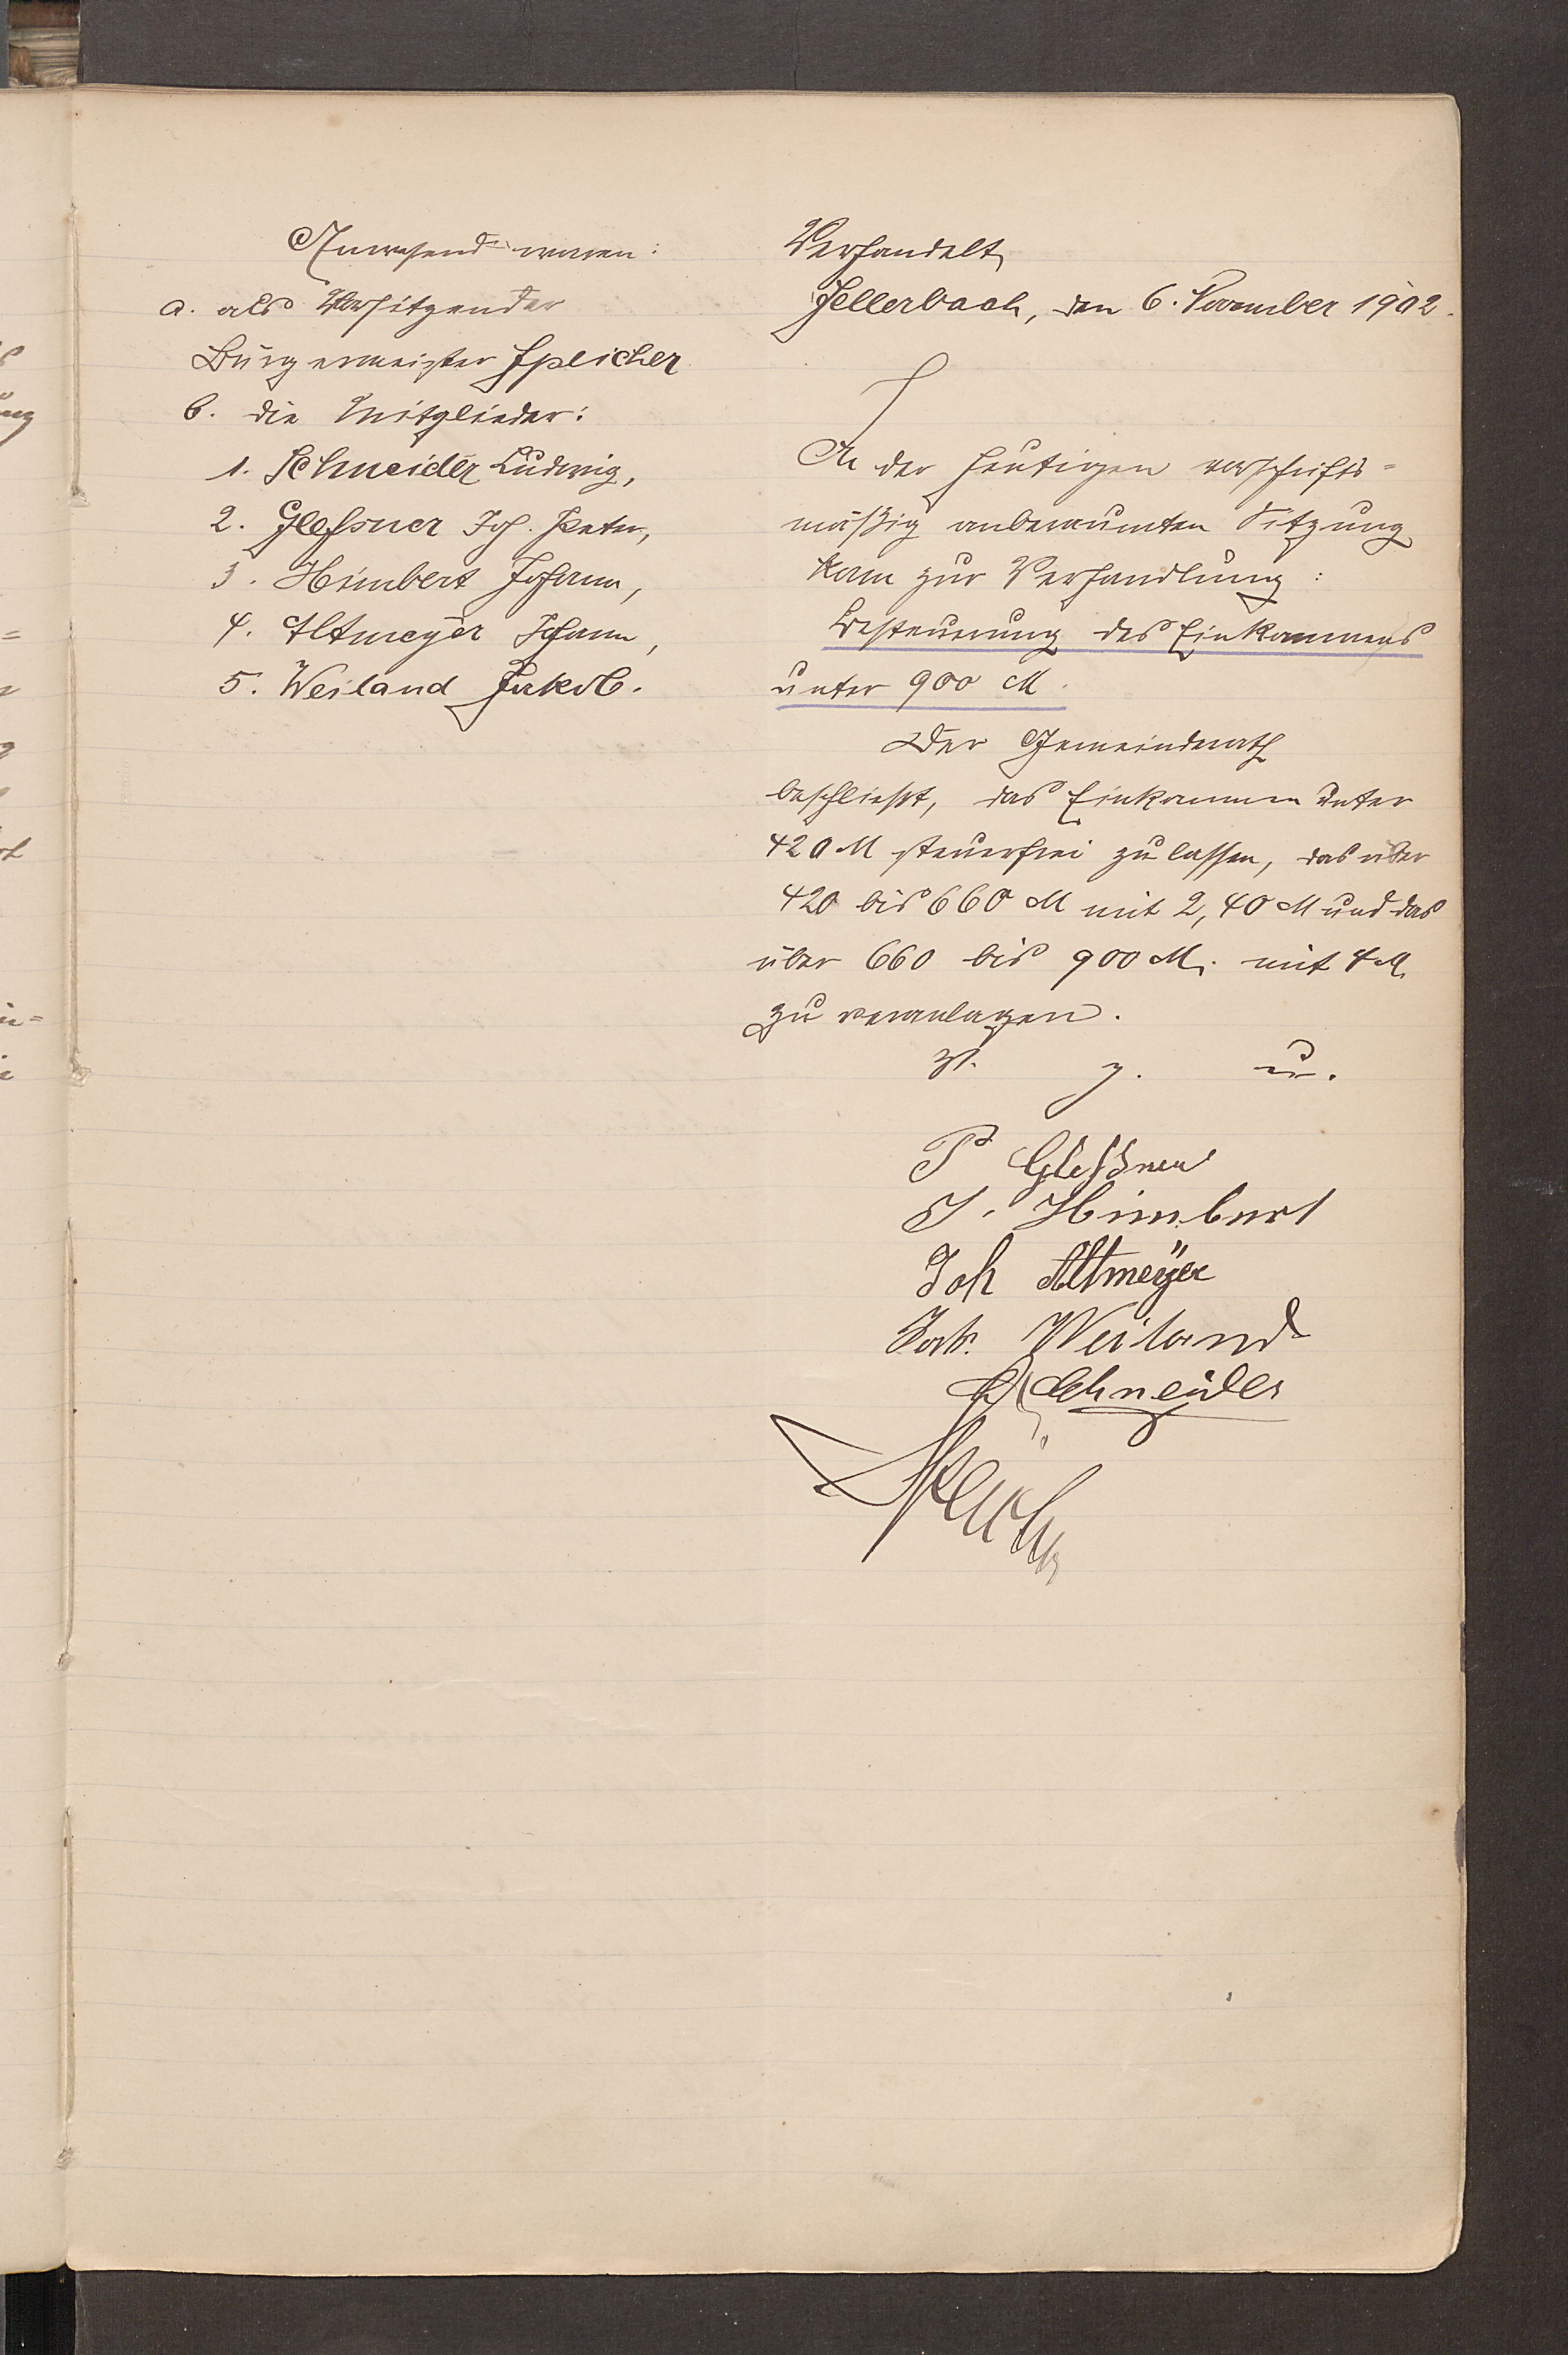 Anwesend waren:
a. als Vorsitzender
Bürgermeister Speicher
b. die Mitglieder:
1. Schneider Ludwig,
2. Gleßner Joh. Peter,
3. Himbert Johann,
4. Altmeyer Johann,
5. Weiland Jakob.
Verhandelt,
Sellerbach, den 6. November 1902.
In der heutigen vorschrifts=
mäßig anberaumten Sitzung
kam zur Verhandlung:
Besteuerung des Einkommens
unter 900 M.
Der Gemeinderath
beschließt, das Einkommen unter
420 M steuerfrei zu lassen, das über
420 bis 660 M mit 2,40 M und das
über 660 bis 900 M. mit 4 M.
zu veranlagen.
v. g. u.
P Gleßner
J. Himbert
Joh Altmeyer
Jak. Weiland
L Schneider
Speicher